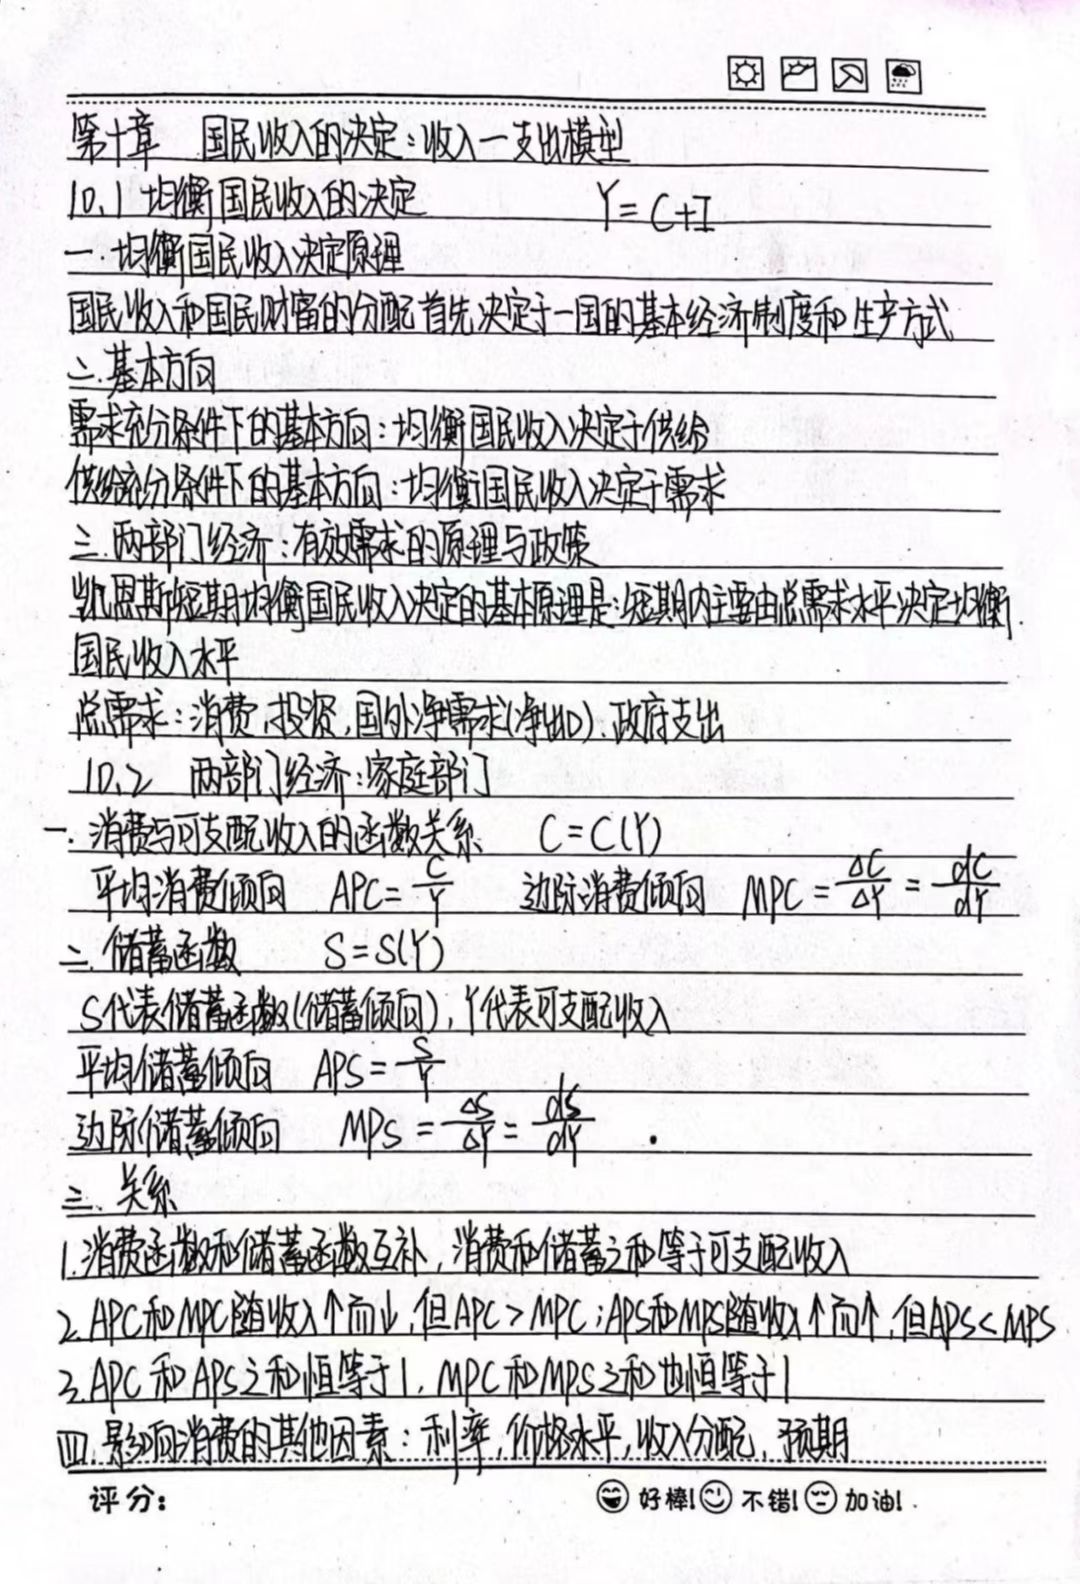 第十章 国民收入的决定：收入一支出模型
10.1 均衡国民收入的决定 Y=C+I
一 均衡国民收入决定原理
国民收入和国民财富的分配首先决定于一国的基本经济制度和生产方式
二.基本方向
需求充分条件下的基本方向：均衡国民收入决定于供给
供给充分条件下的基本方向：均衡国民收入决定于需求
三.两部门经济：有效需求的原理与政策
凯恩斯短期均衡国民收入决定的基本原理是：短期内主要由总需求水平决定均衡
国民收入水平
总需求：消费、投资，国外净需求(净出口)、政府支出
10.2 两部门经济：家庭部门
一.消费与可支配收入的函数关系 C=C(Y)
平均消费倾向 APC=C/Y 边际消费倾向 MPC=ΔC/ΔY=dC/dY
二.储蓄函数 S=S(Y)
S代表储蓄函数(储蓄倾向)，Y代表可支配收入
平均储蓄倾向 APS=S/Y
边际储蓄倾向 MPS=ΔS/ΔY=dS/dY
三.关系
1.消费函数和储蓄函数互补，消费和储蓄之和等于可支配收入
2.APC和MPC随收入↑而↓，但APC>MPC；APS和MPS随收入↑而↑，但APS<MPS
3.APC和APS之和恒等于1，MPC和MPS之和也恒等于1
四.影响消费的其他因素：利率，价格水平，收入分配，预期
评分： 好棒! 不错! 加油!